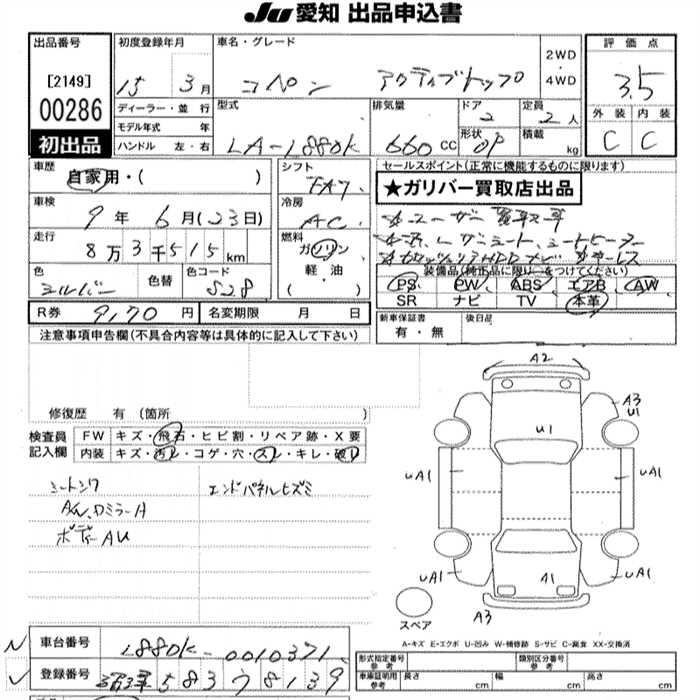 JU 愛知 出品申込書
出品番号
[2149]
00286
初出品
初度登録年月
15 3月
ディーラー・並 行
モデル年式 年
ハンドル 左・右
車名・グレード
コペン アクティブトップ
2WD
・
4WD
評価点
3.5
外装 内装
C C
型式
LA-L880K
排気量
660 CC
ドア
2
定員
2人
形状
OP
積載
kg
車歴
自家用・( )
車検
9年 6月(23日)
走行
8万3千515km
色
シルバー
色替
色コード
S28
シフト
FAT
冷房
AC
燃料
ガソリン
軽・油
・( )
セールスポイント(正常に機能するものに限ります)
★ガリバー買取店出品
装備品(純正品に限り○をつけてください)
PS PW ABS エアB AW
SR ナビ TV 本革
R券 9,170 円
名変期限 月 日
新車保証書
有・無
後日品
注意事項申告欄(不具合内容等は具体的に記入して下さい)
修復歴 有 (箇所
検査員
記入欄
FW キズ・飛石・ヒビ割・リペア跡・X要
内装 キズ・汚レ・コゲ・穴・スレ・キレ・破レ
シートシワ
エンドパネルヒズミ
ボディーAU
A2
A3
U1
U1
UA1 UA1
UA1 A1 UA1
A3
スペア
A-キズ E-エクボ U-凹み W-補修跡 S-サビ C-腐食 XX-交換済
車台番号 L880K-0010371
登録番号
583 78139
形式指定番号
参考
類別区分番号
参考
車庫証明用
参考
長さ cm 幅 cm 高さ cm